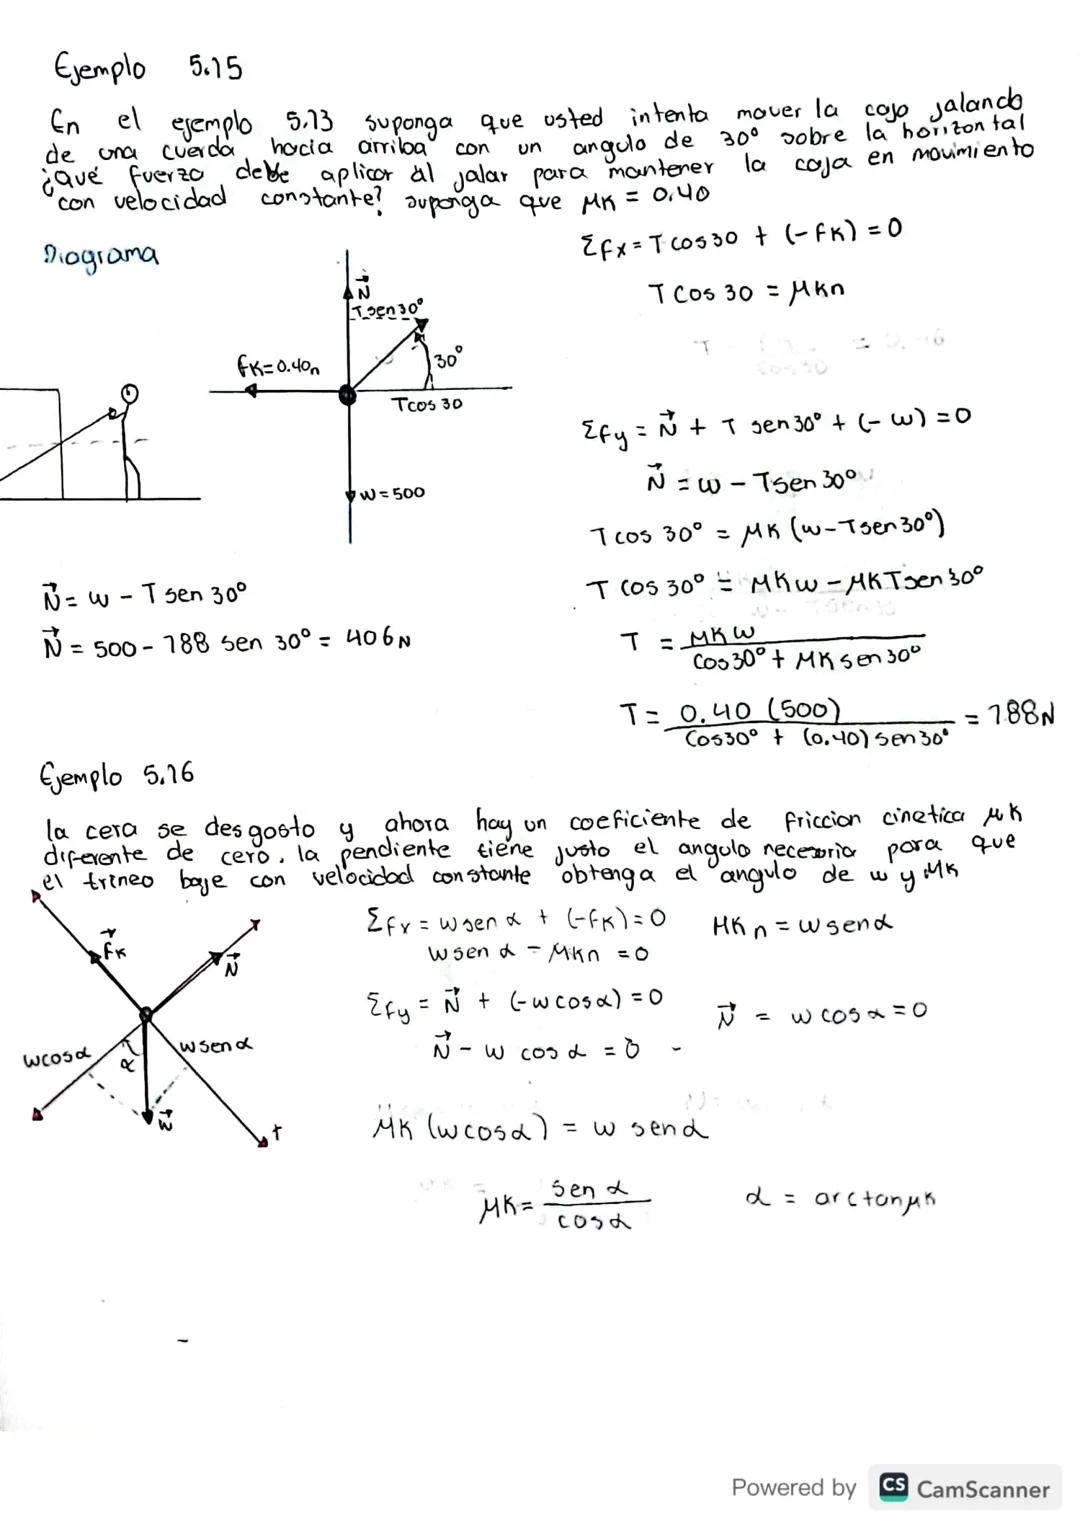 Ejemplo 5.15
En el ejemplo 5.13 suponga que usted intenta mover la caja jalando
de una cuerda hacia arriba con un angulo de 30° sobre la horizontal
¿que fuerza debe aplicar al jalar para mantener la caja en movimiento
con velocidad constante? suponga que μK = 0.40
Diagrama
N
Tsen30°
fK=0.40n
30°
Tcos 30
W=500
Σfx = T cos30 + (-fK) = 0
T Cos 30 = μKn
Σfy = N + T sen 30° + (-w) = 0
N = w - Tsen 30°
T cos 30° = μK (w-Tsen30°)
T cos 30° = μKw - μKTsen 30°
T = μKw / Cos30° + μK sen 30°
T = 0.40 (500) / Cos30° + (0.40) sen 30° = 188N
N = w - T sen 30°
N = 500 - 188 sen 30° = 406N
Ejemplo 5.16
la cera se desgosto y ahora hay un coeficiente de friccion cinetica μk
diferente de cero. la pendiente tiene justo el angulo necesario para que
el trineo baje con velocidad constante obtenga el angulo de w y μK
fK
N
wcosα
α
wsenα
w
+
Σfx = wsen α + (-fK) = 0
μK n = wsenα
wsen α - μKn = 0
Σfy = N + (-w cosα) = 0
N = w cos α = 0
N - w cos α = 0
μK (wcosα) = w senα
μK = sen α / cosα
α = arctanμK
Powered by CS CamScanner